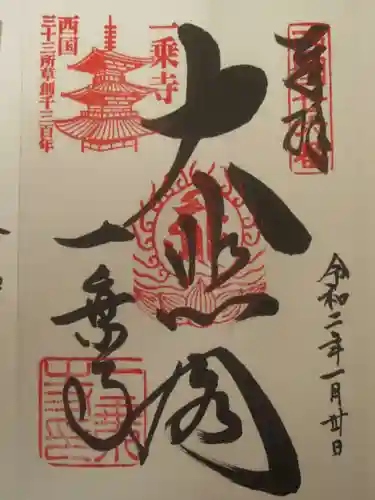 奉拝
令和二年一月廿日
大悲閣
一乗寺
西国
三十三所草創千三百年
一乗寺